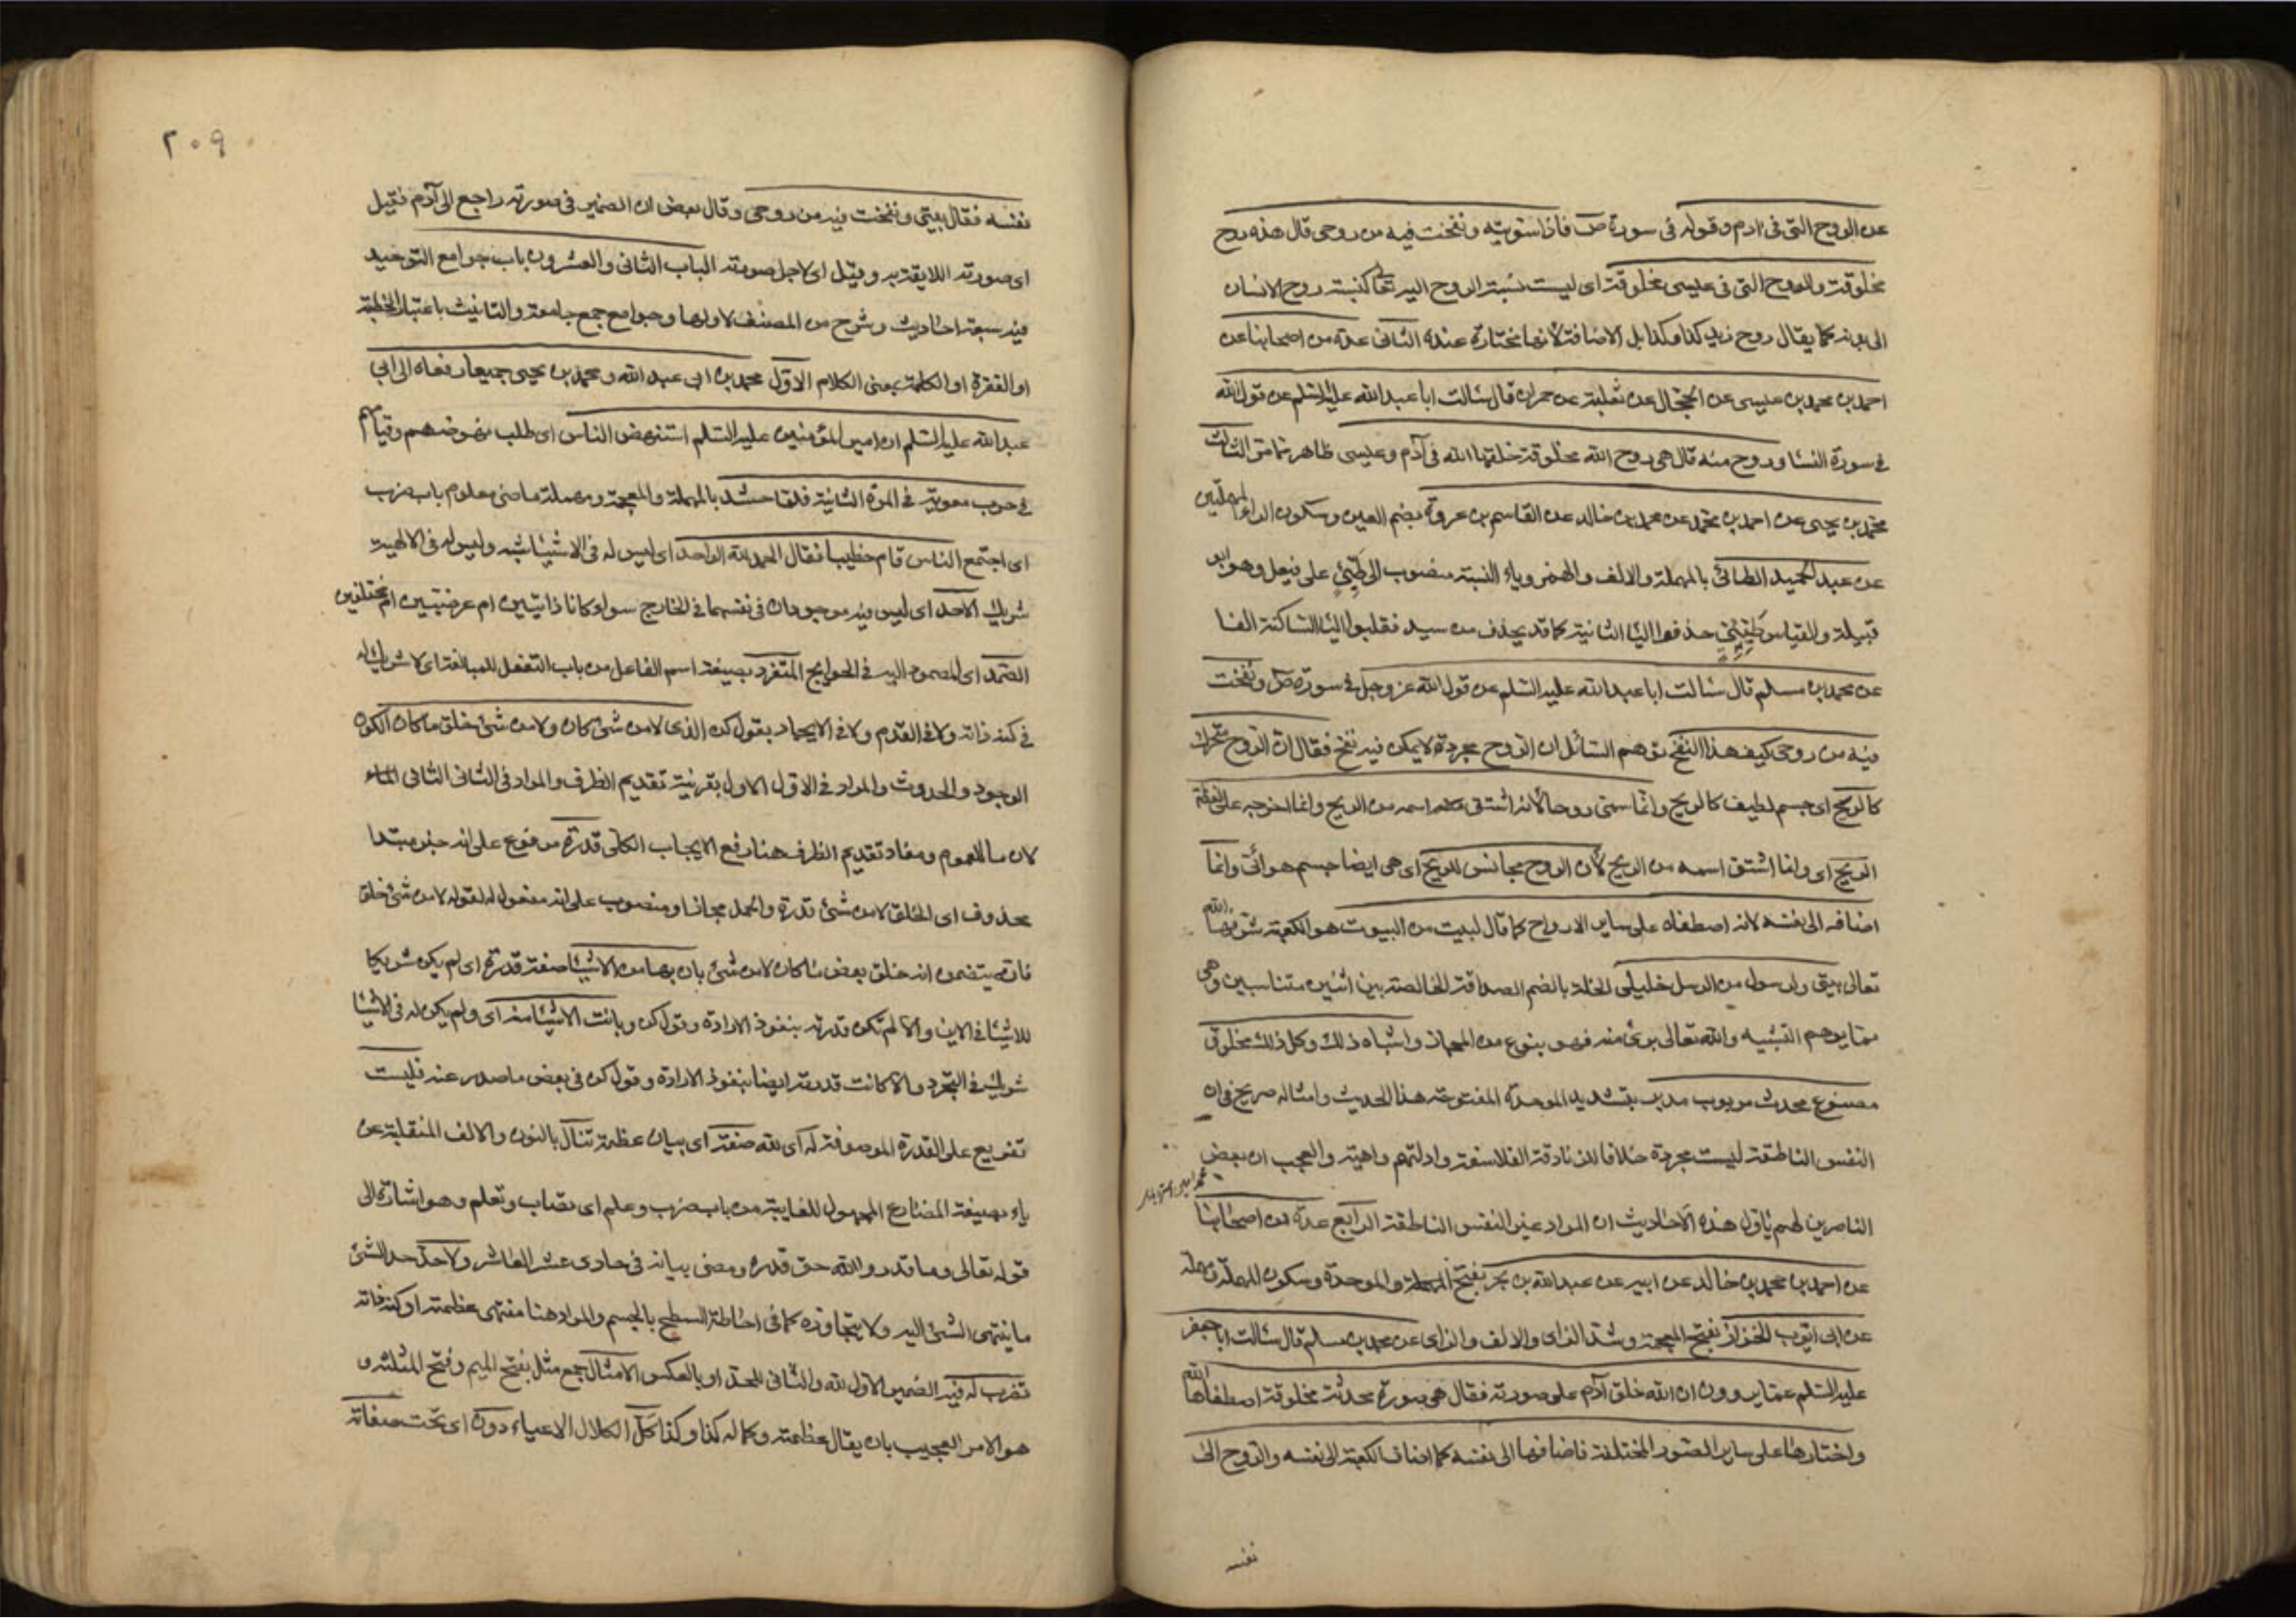 عن الروح التی فی ادم و قوله فی سورة ص فاذا سویته و نفخت فیه من روحی قال هذه روح
مخلوقة والروح التی فی عیسی مخلوقة ای لیست نسبة الروح الیه تعا کنسبة روح الانسان
الی بدنه کما یقال روح زید کذا وکذا بل الاضافة لأنها مختارة عنده الثانی عدة من اصحابنا عن
احمد بن محمد بن عیسی عن الحجال عن ثعلبة عن حمران قال سالت ابا عبدالله علیه السلم عن قول الله
فی سورة النسا و روح منه قال هی روح الله مخلوقة خلقها الله فی آدم وعیسی ظاهر مما مر الثالث
محمد بن یحیی عن احمد بن محمد عن محمد بن خالد عن القاسم بن عروة بضم العین وسکون الراء المهملتین
عن عبد الحمید الطائی بالمهملة والالف والهمز ویاء النسبة منصوب الی طیّئ علی فیعل وهو ابو
قبیلة والقیاس طیّئی حذفوا الیا الثانیة کما قد یحذف من سید فقلبوا الیا الساکنة الفا
عن محمد بن مسلم قال سالت ابا عبدالله علیه السلم عن قول الله عز وجل فی سورة ص ونفخت
فیه من روحی کیف هذا النفخ توهم السائل ان الروح مجردة لا یمکن فیه نفخ فقال ان الروح متحرک
کالریح ای جسم لطیف کالریح وانما سمّی روحا لأنه اشتق اسمه من الریح وانما اخرجه علی لفظة
الریح ای وانما اشتق اسمه من الریح لأن الروح مجانس للریح ای هی ایضا جسم هوائی وانما
اضافه الی نفسه لانه اصطفاه علی سایر الارواح کما قال لبیت من البیوت هو الکعبة شرفها الله
تعالی بیتی ولرسول من الرسل خلیلی الخلة بالضم الصداقة الخالصة بین اثنین متناسبین وهی
مما یوهم التشبیه والله تعالی بریء منه فهو بنوع من المجاز واشباه ذلك وکل ذلك مخلوق
مصنوع محدث مربوب مدبر بتشدید الموحدة المفتوحة هذا الحدیث وامثاله صریح فی ان
النفس الناطقة لیست مجردة خلافا للزنادقة الفلاسفة وادلتهم واهیة والعجب ان بعض
الناصرین لهم یاول هذه الاحادیث ان المراد غیر النفس الناطقة الرابع عدة من اصحابنا
عن احمد بن محمد بن خالد عن ابیه عن عبدالله بن بحر بفتح الموحدة وسکون المهملة ومهملة
عن ابی ایوب الخزاز بفتح المعجمة وشد الزای والالف والزای عن محمد بن مسلم قال سالت ابا جعفر
علیه السلم عما یروون ان الله خلق آدم علی صورته فقال هی صورة محدثة مخلوقة اصطفاها الله
واختارها علی سایر الصور المختلفة فاضافها الی نفسه کما اضاف الکعبة الی نفسه والروح الی
نفسه
۲۰۹
نفسه فقال بیتی ونفخت فیه من روحی وقال بعض ان الضمیر فی صورته راجع الی آدم فقیل
ای صورته اللایقة به وقیل ای لاجل صورته الباب الثانی والعشرون باب جوامع التوحید
فیه سبعة احادیث وشرح من المصنف لاولها وجوامع جمع جامعة والتانیث باعتبار الخطبة
او الفقرة او الکلمة بمعنی الکلام الاوّل محمد بن ابی عبدالله ومحمد بن یحیی جمیعا رفعاه الی ابی
عبدالله علیه السلم ان امیر المؤمنین علیه السلم استنهض الناس ای طلب نهوضهم وقیامهم
فی حرب معویة فی المرة الثانیة فلما حشد بالمهملة والمعجمة ومهملة ماضی معلوم باب ضرب
ای اجتمع الناس قام خطیبا فقال الحمد لله الواحد ای لیس له فی الاشیاء شبه ولیس له فی الالهیة
شریك الاحد ای لیس فیه موجودان فی نفسهما فی الخارج سواء کانا ذاتیین ام عرضیین ام مختلفین
الصمد ای المصمود الیه فی الحوایج المتفرد بصیغة اسم الفاعل من باب التفعل للمبالغة ای لا شریك له
فی کنه ذاته ولا فی القدم ولا فی الایجاد بقول کن الذی لا من شئ کان ولا من شئ خلق ما کان الکون
الوجود والحدوث والمراد فی الاول الاول بقرینة تقدیم الظرف والمراد فی الثانی الثانی
لان ما للعموم ومفاد تقدیم الظرف هنا رفع الایجاب الکلی قدرة مرفوع علی انه خبر مبتدا
محذوف ای الخلق لا من شئ قدرة والحمل مجاز او منصوب علی انه مفعول له لقوله لا من شئ خلق
فانه یتضمن انه خلق بعض ما کان لا من شئ بان بها من الاشیا صفة قدرة ای لم یکن شریکا
للاشیا فی الاین والا لم تکن قدرته بنفوذ الارادة وقول کن وبانت الاشیا منه ای ولم یکن له فی الاشیا
شریك فی التجرد والا کانت قدرته ایضا بنفوذ الارادة وقول کن فی بعض ما صدر عنه فلیست
تفریع علی القدرة الموصوفة له ای لله صفة ای بیان عظمة تنال بالنون والالف المنقلبة عن
یاء بصیغة المضارع المجهول للغایبة من باب ضرب وعلم ای تصاب وتعلم وهو اشارة الی
قوله تعالی وما قدروا الله حق قدره ومضی بیانه فی حادی عشر العاشر ولا حد حد الشئ
ما ینتهی الشئ الیه ولا یتجاوزه کما فی احاطة السطح بالجسم والمراد هنا منتهی عظمته او کنه ذاته
تضرب له فیه الضمیر الاول لله والثانی للحد او بالعکس الامثال جمع مثل بفتح المیم وفتح المثلثة و
هو الامر العجیب بان یقال عظمته وکماله کذا وکذا کلّ الکلال الاعیاء دون ای تحت صفاته